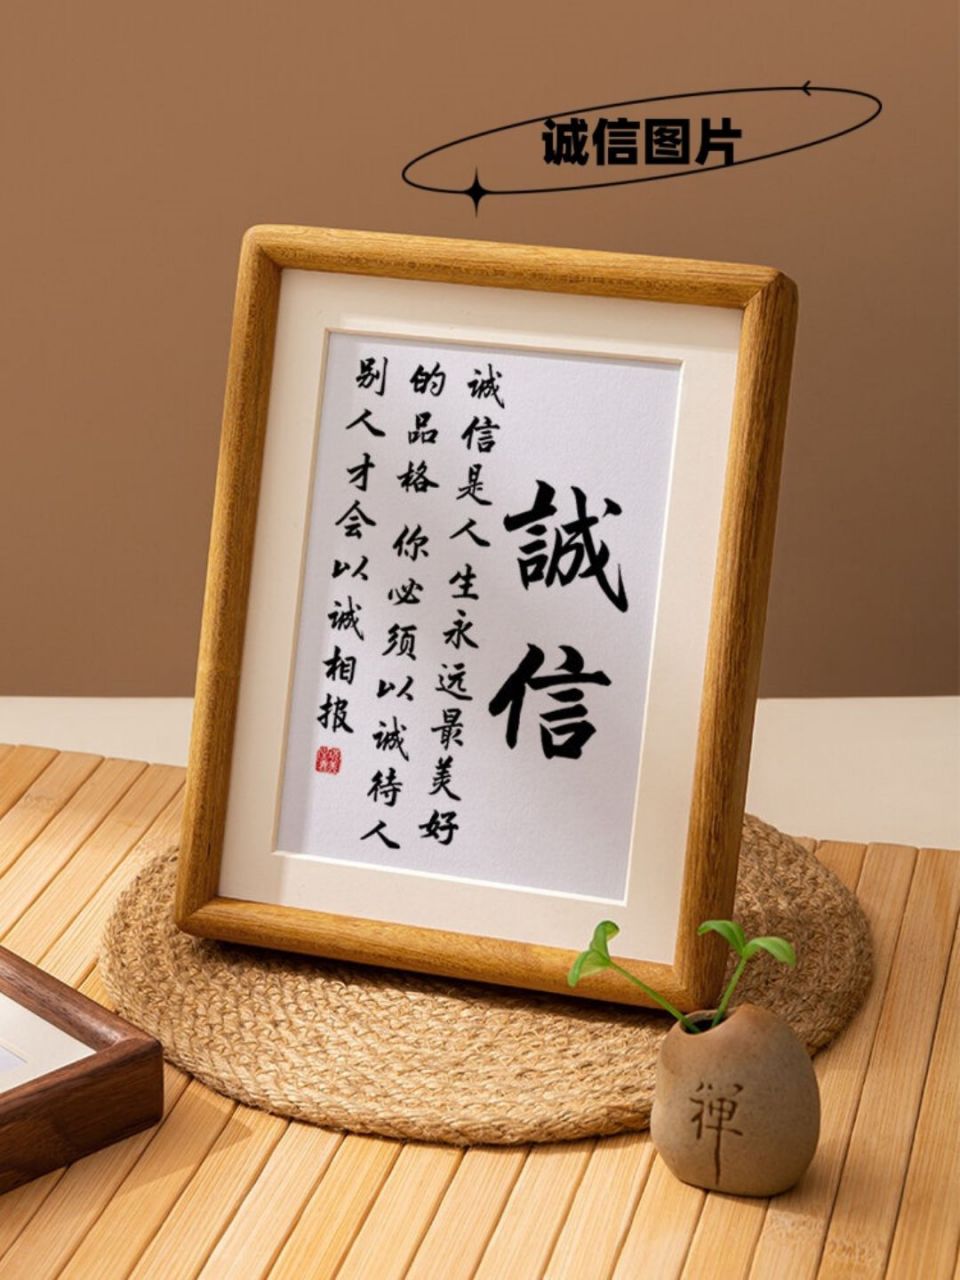 诚信图片
誠信
诚信是人生永远最美好
的品格 你必须以诚待人
别人才会以诚相报
禅